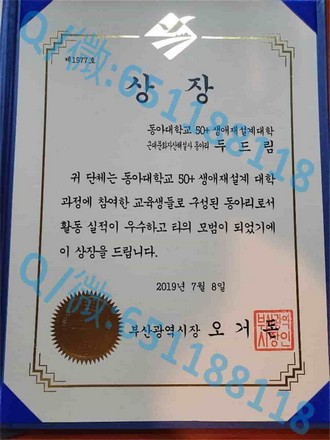 제1977호
상장
동아대학교 50+ 생애재설계대학
근대문화자산해설사 동아리 두드림
귀 단체는 동아대학교 50+ 생애재설계 대학
과정에 참여한 교육생들로 구성된 동아리로서
활동 실적이 우수하고 타의 모범이 되었기에
이 상장을 드립니다.
2019년 7월 8일
부산광역시장 오거돈
부산광역
시장인
Q/微:651188118
Q/微:651188118
Q/微:651188118